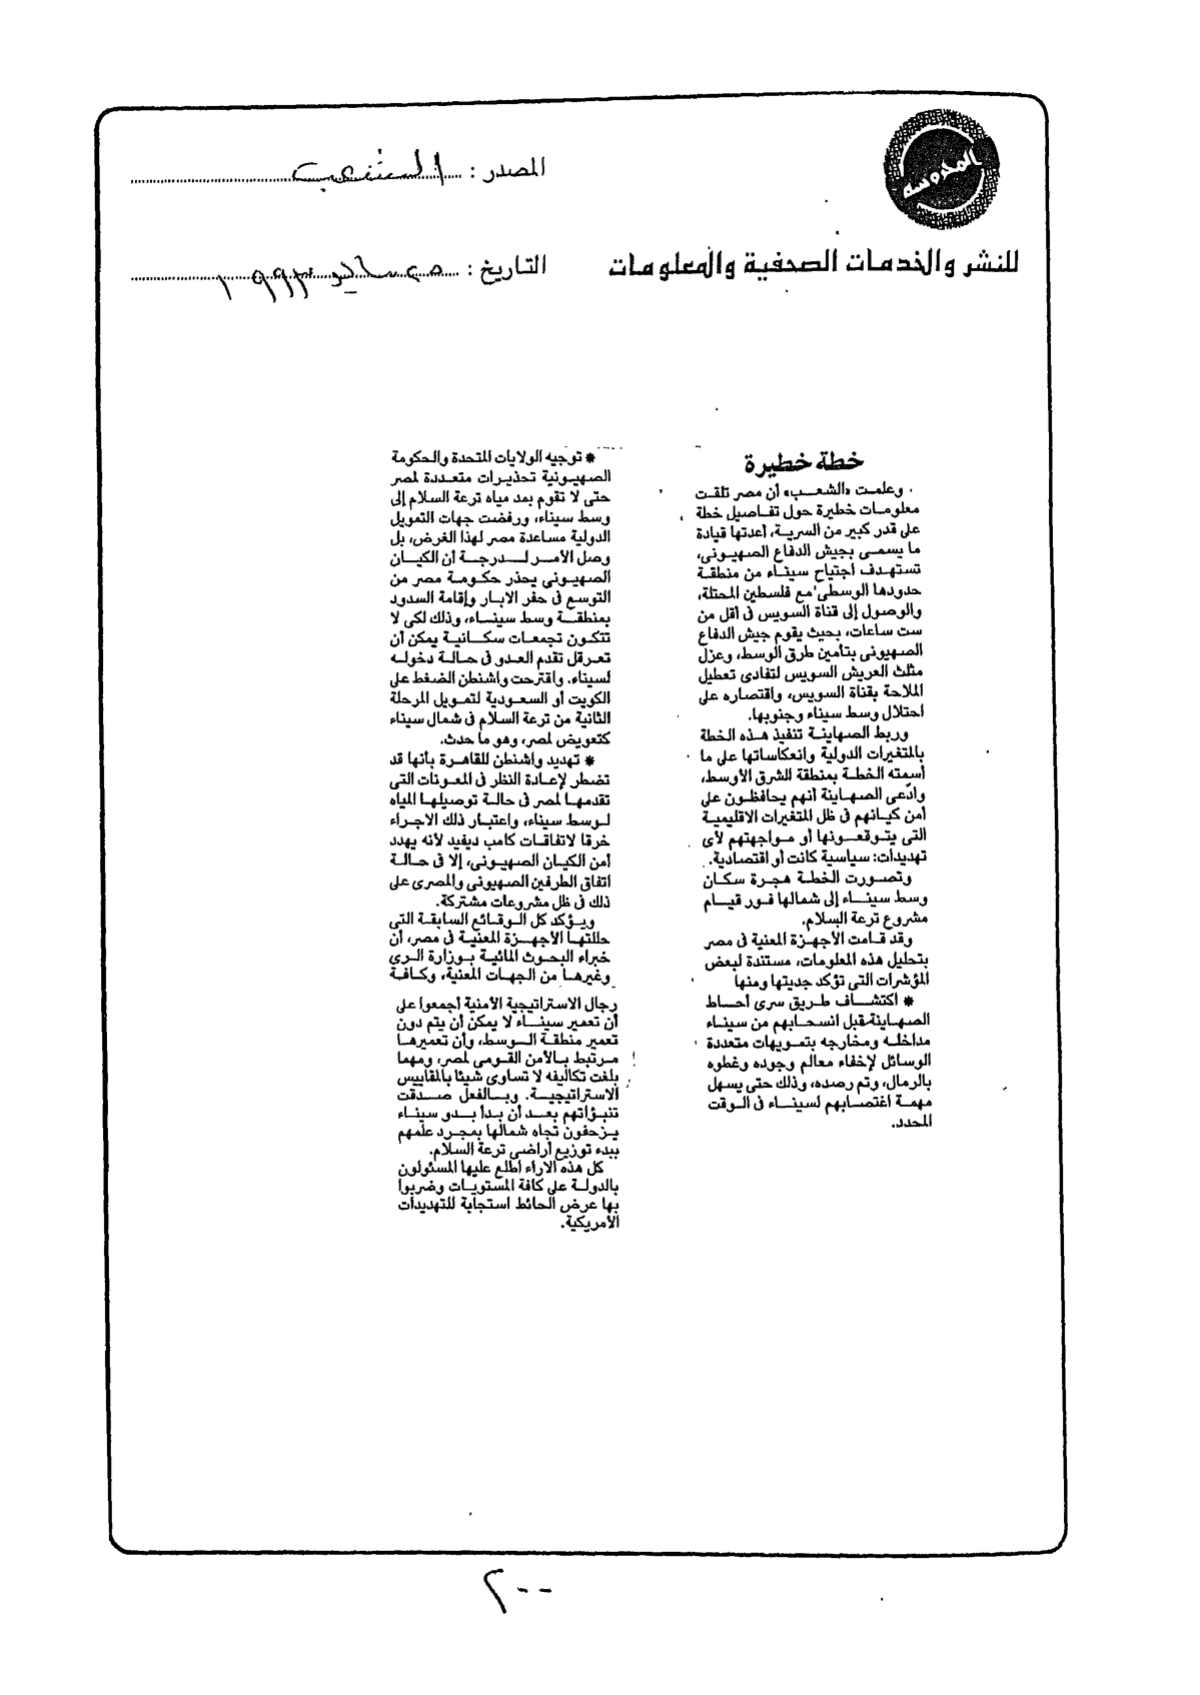 المحروسة
المصدر : الشعب
للنشر والخدمات الصحفية والمعلومات
التاريخ : ١٩٩٣
خطة خطيرة
وعلمت «الشعب» أن مصر تلقت
معلومات خطيرة حول تفاصيل خطة
على قدر كبير من السرية، أعدتها قيادة
ما يسمى بجيش الدفاع الصهيونى،
تستهدف اجتياح سيناء من منطقة
حدودها الوسطى مع فلسطين المحتلة،
والوصول إلى قناة السويس فى أقل من
ست ساعات، بحيث يقوم جيش الدفاع
الصهيونى بتأمين طرق الوسط، وعزل
مثلث العريش السويس لتفادى تعطيل
الملاحة بقناة السويس، واقتصاره على
احتلال وسط سيناء وجنوبها.
وربط الصهاينة تنفيذ هذه الخطة
بالمتغيرات الدولية وانعكاساتها على ما
أسمته الخطة بمنطقة الشرق الأوسط،
وادّعى الصهاينة أنهم يحافظون على
أمن كيانهم فى ظل المتغيرات الاقليمية
التى يتوقعونها أو مواجهتهم لأى
تهديدات: سياسية كانت أو اقتصادية.
وتصورت الخطة هجرة سكان
وسط سيناء إلى شمالها فور قيام
مشروع ترعة السلام.
وقد قامت الأجهزة المعنية فى مصر
بتحليل هذه المعلومات، مستندة لبعض
المؤشرات التى تؤكد جديتها ومنها
* اكتشاف طريق سرى أحاط
الصهاينة قبل انسحابهم من سيناء
مداخله ومخارجه بتمويهات متعددة
الوسائل لإخفاء معالم وجوده وغطوه
بالرمال، وتم رصده، وذلك حتى يسهل
مهمة اغتصابهم لسيناء فى الوقت
المحدد.
* توجيه الولايات المتحدة والحكومة
الصهيونية تحذيرات متعددة لمصر
حتى لا تقوم بمد مياه ترعة السلام إلى
وسط سيناء، ورفضت جهات التمويل
الدولية مساعدة مصر لهذا الغرض، بل
وصل الأمر لدرجة أن الكيان
الصهيونى يحذر حكومة مصر من
التوسع فى حفر الابار وإقامة السدود
بمنطقة وسط سيناء، وذلك لكى لا
تتكون تجمعات سكانية يمكن أن
تعرقل تقدم العدو فى حالة دخوله
لسيناء. واقترحت واشنطن الضغط على
الكويت أو السعودية لتمويل المرحلة
الثانية من ترعة السلام فى شمال سيناء
كتعويض لمصر، وهو ما حدث.
* تهديد واشنطن للقاهرة بأنها قد
تضطر لإعادة النظر فى المعونات التى
تقدمها لمصر فى حالة توصيلها المياه
لوسط سيناء، واعتبار ذلك الاجراء
خرقا لاتفاقات كامب ديفيد لأنه يهدد
أمن الكيان الصهيونى، إلا فى حالة
اتفاق الطرفين الصهيونى والمصرى على
ذلك فى ظل مشروعات مشتركة.
ويؤكد كل الوقائع السابقة التى
حللتها الأجهزة المعنية فى مصر، أن
خبراء البحوث المائية بوزارة الرى
وغيرها من الجهات المعنية، وكافة
رجال الاستراتيجية الأمنية أجمعوا على
أن تعمير سيناء لا يمكن أن يتم دون
تعمير منطقة الوسط، وأن تعميرها
مرتبط بالأمن القومى لمصر، ومهما
بلغت تكاليفه لا تساوى شيئا بالمقاييس
الاستراتيجية. وبالفعل صدقت
تنبؤاتهم بعد أن بدأ بدو سيناء
يزحفون تجاه شمالها بمجرد علمهم
ببدء توزيع أراضى ترعة السلام.
كل هذه الآراء اطلع عليها المسئولون
بالدولة على كافة المستويات وضربوا
بها عرض الحائط استجابة للتهديدات
الأمريكية.
٢٠٠